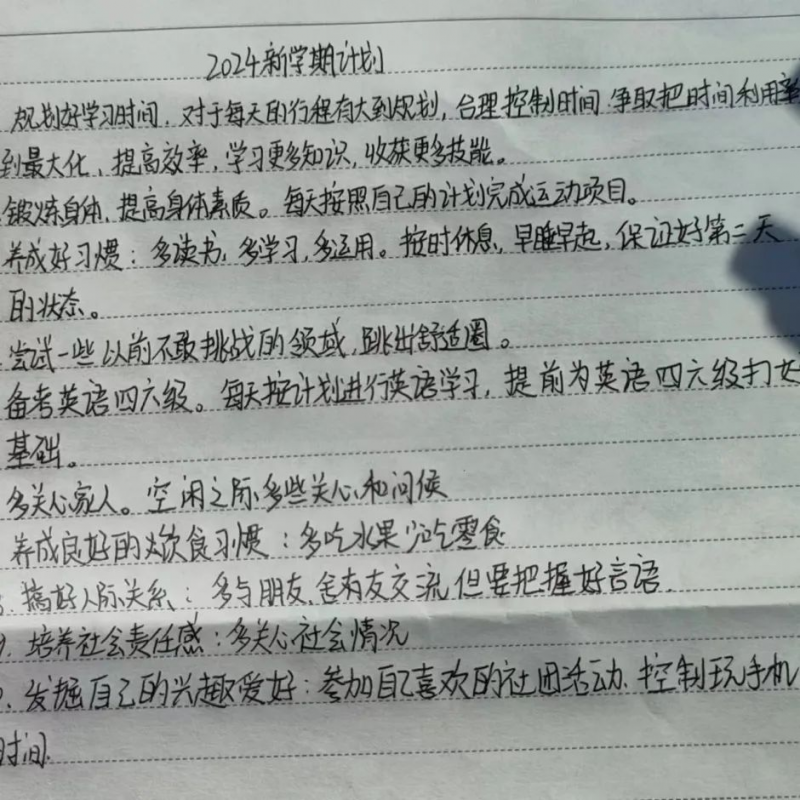 2024新学期计划
规划好学习时间，对于每天的行程有大到规划，合理控制时间.争取把时间利用率
到最大化，提高效率，学习更多知识，收获更多技能。
锻炼身体，提高身体素质。每天按照自己的计划完成运动项目。
养成好习惯：多读书，多学习，多运用。按时休息，早睡早起，保证好第二天
的状态。
尝试一些以前不敢挑战的领域，跳出舒适圈。
备考英语四六级。每天按计划进行英语学习，提前为英语四六级打
基础。
多关心家人。空闲之际多些关心和问候
养成良好的饮食习惯：多吃水果少吃零食
搞好人际关系：多与朋友，舍友交流，但要把握好言语.
9. 培养社会责任感：多关心社会情况
发掘自己的兴趣爱好：参加自己喜欢的社团活动.控制玩手机
时间.